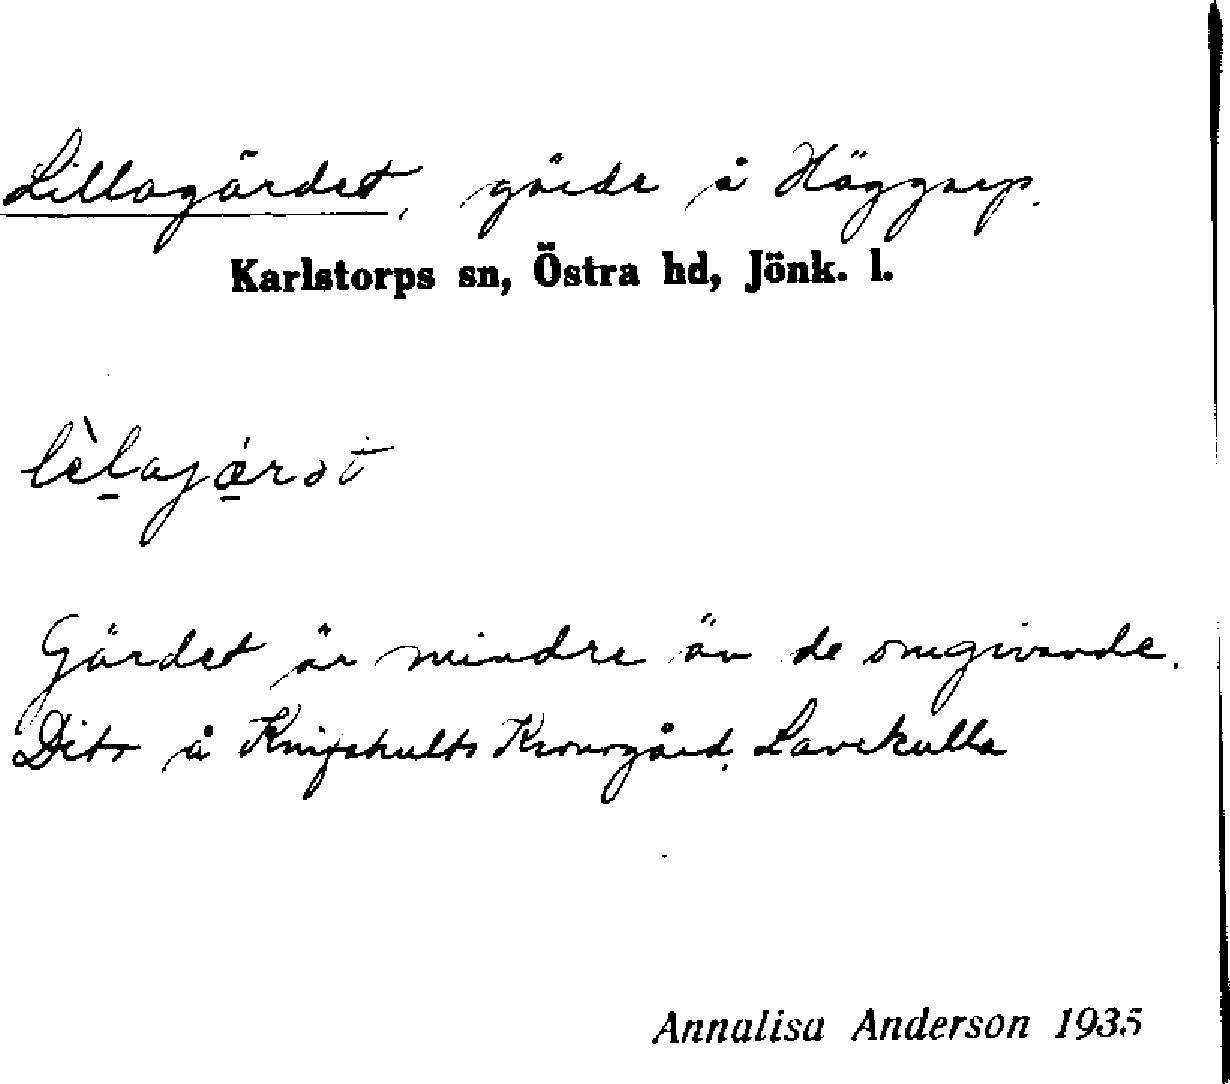 Lillagärdet, gärde å Häggarp.
Karlstorps sn, Östra hd, Jönk. l.
lèlajærət
Gärdet är mindre än de omgivande.
Dito å Knifshults Kronogård, Lavekulla
Annalisa Anderson 1935